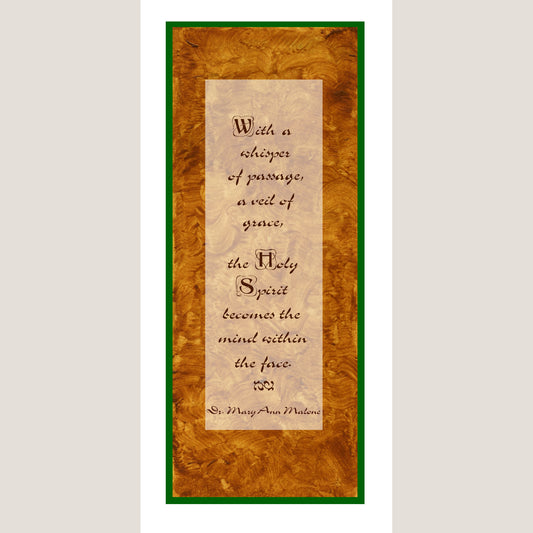 With a
whisper
of passage,
a veil of
grace,
the Holy
Spirit
becomes the
mind within
the face.
Dr. Mary Ann Malone